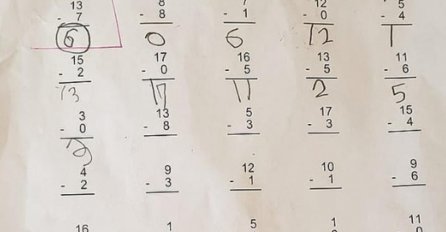 13 8 7 12 5
- 7 - 8 - 1 - 0 - 4
6 0 6 12 1
15 17 16 13 11
- 2 - 0 - 5 - 5 - 6
13 17 11 2 5
3 13 5 17 15
- 0 - 8 - 3 - 3 - 4
3
4 9 12 10 9
- 2 - 3 - 1 - 1 - 6
16 1 5 1 11